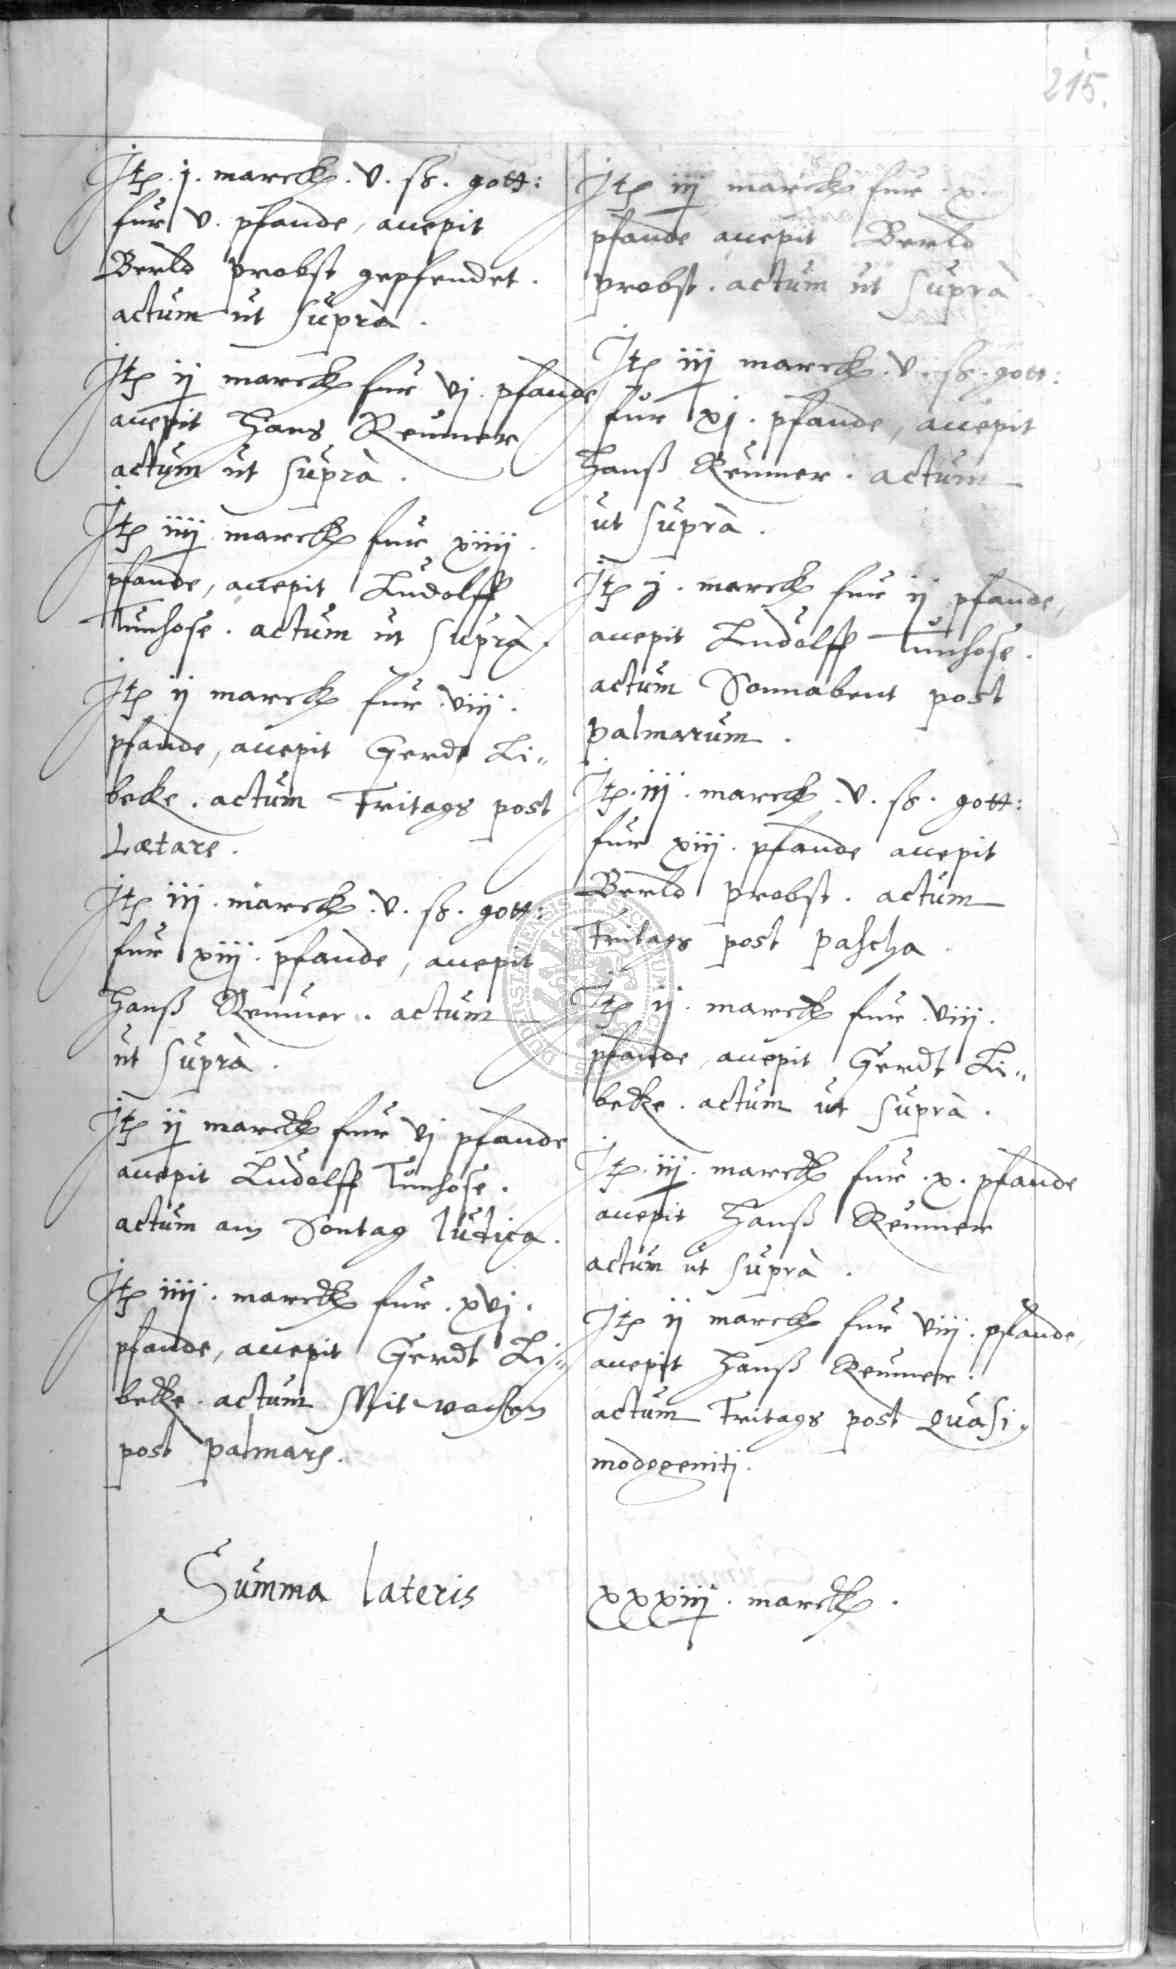 215.
Itē .j. marck .v. sß. gott:
fur v. pfande, accepit
Berld probst gepfendet.
actum ut suprà.
Itē ij marck fur vj. pfande
accepit Hans Reumer
actum ut suprà.
Itē iiij marck fur xiiij.
pfande, accepit Ludolff
Tunhose. actum ut suprà.
Itē ij marck fur .viij.
pfande, accepit Gerdt Li„
becke. actum Fritags post
Lætare.
Itē iij. marck .v. sß. gott:
fur xiij. pfande, accepit
Hanß Reumer. actum
ut suprà.
Itē ij marck fur vj pfande
accepit Ludolff Tunhose.
actum am Sontag Iudica.
Itē iiij. marck fur .xvj.
pfande, accepit Gerdt Li„
becke. actum Mitwochen
post palmarū.
Itē iij marck fur .x.
pfande accepit Berld
probst. actum ut suprà.
Itē iij marck .v. sß. gott:
fur xj. pfande, accepit
Hanß Reumer. actum
ut suprà.
Itē j. marck fur ij pfande,
accepit Ludolff Tunhose.
actum Sonnabent post
palmarum.
Itē .iij. marck .v. sß. gott:
fur xiij. pfande accepit
Berld probst. actum
Fritags post pascha.
Itē ij. marck fur .viij.
pfande, accepit Gerdt Li„
becke. actum ut suprà.
Itē .iij. marck fur .x. pfande
accepit Hanß Reumer
actum ut suprà.
Itē ij marck fur viij. pfande,
accepit Hanß Reumer.
actum Fritags post Quasi„
modogeniti.
Summa lateris xxxiiij. marck.